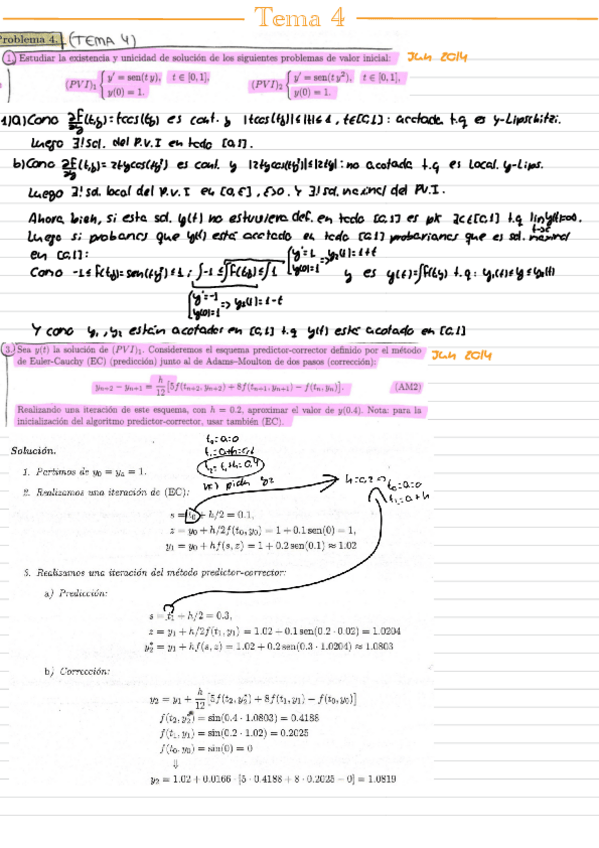 Tema 4
Problema 4. (TEMA 4)
1. Estudiar la existencia y unicidad de solución de los siguientes problemas de valor inicial: Jun 2014
(PVI)₁ { y' = sen(t y), t ∈ [0,1], y(0) = 1. (PVI)₂ { y' = sen(t y²), t ∈ [0,1], y(0) = 1.
1)a) Como ∂f/∂y (t,y) = t cos(ty) es cont. y |t cos(ty)| ≤ |t| ≤ 1, t∈[0,1]: acotada t.q es y-Lipschitzi.
Luego ∃! Sol. del P.V.I en todo [0,1].
b) Como ∂f/∂y (t,y) = 2ty cos(ty²) es cont. y |2ty cos(ty²)| ≤ |2ty|: no acotada t.q es Local. y-Lips.
Luego ∃! sol. local del P.V.I en [0,ε], ε>0. Y ∃! sol. maximal del PV.I.
Ahora bien, si esta sol. y(t) no estuviera def. en todo [0,1] es pk ∃c∈[0,1] t.q lim y(t)=∞.
t→c
Luego si probamos que y(t) está acotado en todo [0,1] probaríamos que es sol. maximal
en [0,1]: { y'=1 y(0)=1 ⇒ y₂(t)=1+t
Como -1 ≤ f(t,y) = sen(ty²) ≤ 1 ; ∫-1 ≤ ∫f(t,y) ≤ ∫1 y es y(t)=∫f(t,y) t.q: y₁(t) ≤ y ≤ y₂(t)
{ y'=-1 y(0)=1 ⇒ y₂(t)=1-t
Y como y₁, y₂ están acotados en [0,1] t.q y(t) está acotado en [0,1]
3. Sea y(t) la solución de (PVI)₁. Consideremos el esquema predictor-corrector definido por el método Jun 2014
de Euler-Cauchy (EC) (predicción) junto al de Adams–Moulton de dos pasos (corrección):
yₙ₊₂ − yₙ₊₁ = h/12 [5f(tₙ₊₂, yₙ₊₂) + 8f(tₙ₊₁, yₙ₊₁) − f(tₙ, yₙ)]. (AM2)
Realizando una iteración de este esquema, con h = 0.2, aproximar el valor de y(0.4). Nota: para la
inicialización del algoritmo predictor-corrector, usar también (EC).
t₀=a=0
Solución. t₁=a+h=0.2
1. Partimos de y₀ = yₐ = 1. t₂=t₁+h=0.4
piden y₂ h=0.2 t₀=a=0
2. Realizamos una iteración de (EC): t₁=a+h
s = t₀ + h/2 = 0.1,
z = y₀ + h/2f(t₀, y₀) = 1 + 0.1 sen(0) = 1,
y₁ = y₀ + hf(s, z) = 1 + 0.2 sen(0.1) ≈ 1.02
3. Realizamos una iteración del método predictor-corrector:
a) Predicción:
s = t₁ + h/2 = 0.3,
z = y₁ + h/2f(t₁, y₁) = 1.02 − 0.1 sen(0.2 · 0.02) = 1.0204
y₂* = y₁ + hf(s, z) = 1.02 + 0.2 sen(0.3 · 1.0204) ≈ 1.0803
b) Corrección:
y₂ = y₁ + h/12 [5f(t₂, y₂*) + 8f(t₁, y₁) − f(t₀, y₀)]
f(t₂, y₂*) = sin(0.4 · 1.0803) = 0.4188
f(t₁, y₁) = sin(0.2 · 1.02) = 0.2025
f(t₀, y₀) = sin(0) = 0
⇓
y₂ = 1.02 + 0.0166 · [5 · 0.4188 + 8 · 0.2025 − 0] = 1.0819